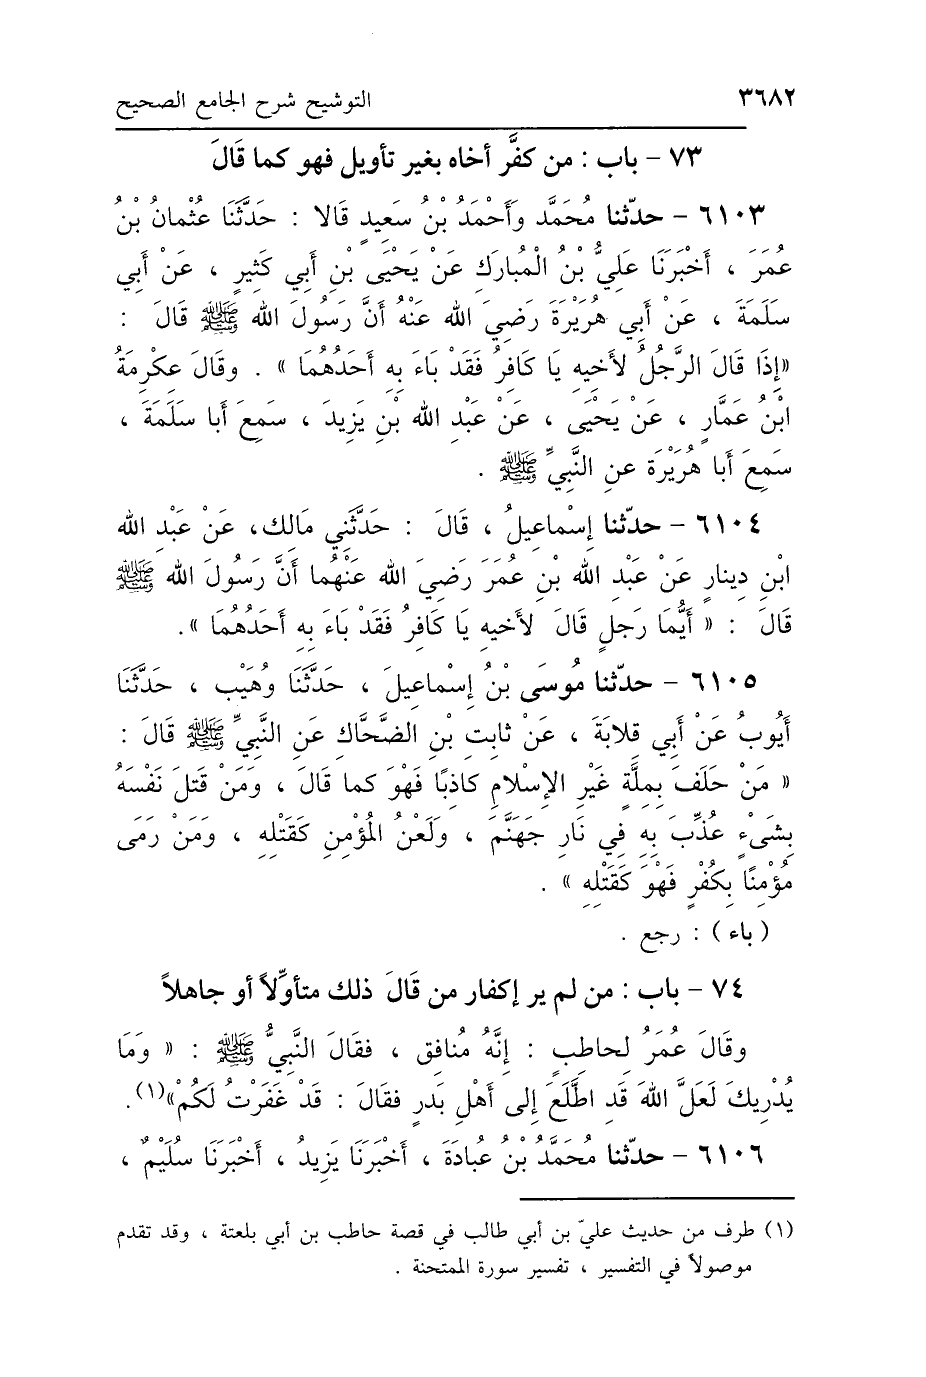 ٣٦٨٢ التوشيح شرح الجامع الصحيح
٧٣ – باب : من كفَّر أخاه بغير تأويل فهو كما قَالَ
٦١٠٣ – حدّثنا مُحَمَّد وَأَحْمَدُ بْنُ سَعِيدٍ قَالا : حَدَّثَنَا عُثْمانُ بْنُ
عُمَرَ ، أَخْبَرَنَا عَلِيُّ بْنُ الْمُبارَكِ عَنْ يَحْيَى بْنِ أَبِي كَثِيرٍ ، عَنْ أَبِي
سَلَمَةَ ، عَنْ أَبِي هُرَيْرَةَ رَضِيَ الله عَنْهُ أَنَّ رَسُولَ الله ﷺ قَالَ :
«إِذَا قَالَ الرَّجُلُ لأَخِيهِ يَا كَافِرُ فَقَدْ بَاءَ بِهِ أَحَدُهُمَا» . وقَالَ عِكْرِمَةُ
ابْنُ عَمَّارٍ ، عَنْ يَحْيَى ، عَنْ عَبْدِ الله بْنِ يَزِيدَ ، سَمِعَ أَبا سَلَمَةَ ،
سَمِعَ أَبا هُرَيْرَة عنِ النَّبِيِّ ﷺ .
٦١٠٤ – حدّثنا إِسْماعِيلُ ، قَالَ : حَدَّثَنِي مَالِك، عَنْ عَبْدِ الله
ابْنِ دِينارٍ عَنْ عَبْدِ الله بْنِ عُمَرَ رَضِيَ الله عَنْهُما أَنَّ رَسُولَ الله ﷺ
قَالَ : « أَيُّمَا رَجُلٍ قَالَ لأَخِيهِ يَا كَافِرُ فَقَدْ بَاءَ بِهِ أَحَدُهُمَا ».
٦١٠٥ – حدّثنا مُوسَى بْنُ إِسْماعِيلَ ، حَدَّثَنَا وُهَيْب ، حَدَّثَنَا
أَيُوبُ عَنْ أَبِي قِلابَةَ ، عَنْ ثابِتِ بْنِ الضَّحَّاكِ عَنِ النَّبِيِّ ﷺ قَالَ :
« مَنْ حَلَفَ بِمِلَّةٍ غَيْرِ الإِسْلامِ كاذِبًا فَهْوَ كما قَالَ ، وَمَنْ قَتلَ نَفْسَهُ
بِشَيْءٍ عُذِّبَ بِهِ فِي نَارِ جَهَنَّمَ ، وَلَعْنُ المُؤْمِنِ كَقَتْلِهِ ، وَمَنْ رَمَى
مُؤْمِنًا بِكُفْرٍ فَهْوَ كَقَتْلِهِ » .
( باء ) : رجع .
٧٤ – باب : من لم ير إكفار من قَالَ ذلك متأوِّلاً أو جاهلاً
وقَالَ عُمَرُ لحاطبٍ : إِنَّهُ مُنافِق ، فقَالَ النَّبِيُّ ﷺ : « وَمَا
يُدْرِيكَ لَعَلَّ اللهَ قَدِ اطَّلَعَ إِلى أَهْلِ بَدرٍ فقَالَ : قَدْ غَفَرْتُ لَكُمْ»(١).
٦١٠٦ – حدّثنا مُحَمَّدُ بْنُ عُبادَةَ ، أَخْبَرَنَا يَزِيدُ ، أَخْبَرَنَا سُلَيْمٌ ،
(١) طرف من حديث عليّ بن أبي طالب في قصة حاطب بن أبي بلعتة ، وقد تقدم
موصولاً في التفسير ، تفسير سورة الممتحنة .